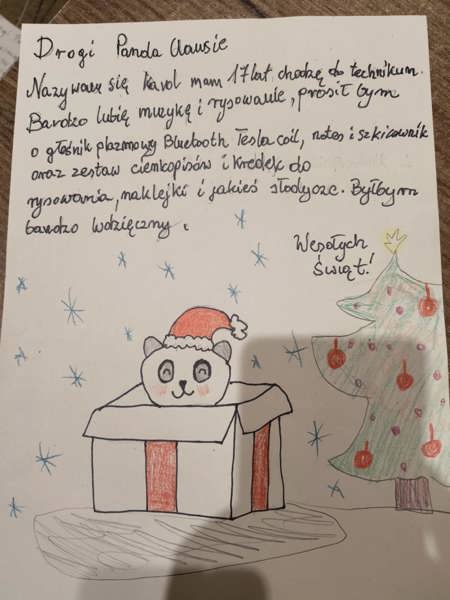 Drogi Panda Clausie
Nazywam się Karol mam 17 lat chodzę do technikum.
Bardzo lubię muzykę i rysowanie, prosił bym
o głośnik plazmowy Bluetooth Tesla coil, notes i szkicownik
oraz zestaw cienkopisów i kredek do
rysowania, naklejki i jakieś słodycze. Byłbym
bardzo wdzięczny.
Wesołych
świąt!